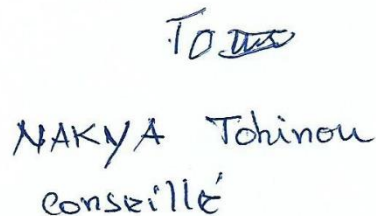 NAKYA Tohinou
conseillé